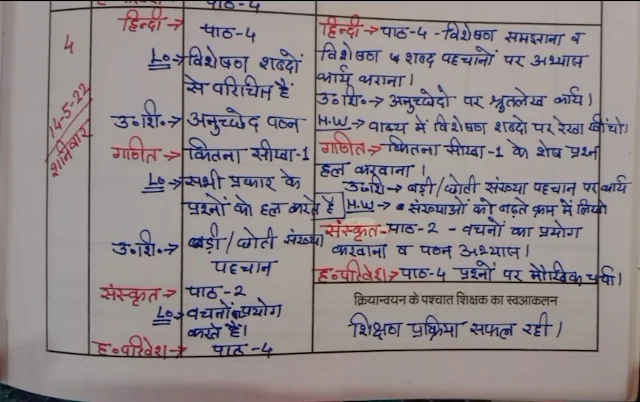 पाठ-4
4
14-5-22
शनिवार
हिन्दी→ पाठ-4
Lo→ विशेषण शब्दों
से परिचित हैं
उ.शि.→ अनुच्छेद पठन
गणित→ कितना सीखा-1
Lo→ सभी प्रकार के
प्रश्नों को हल करते है
उ.शि.→ बड़ी/छोटी संख्या
पहचान
संस्कृत→ पाठ-2
Lo→ वचनों प्रयोग
करते है।
ह.परिवेश→ पाठ-4
हिन्दी→ पाठ-4 - विशेषण समझाना व
विशेषण शब्द पहचानों पर अभ्यास
कार्य कराना।
उ.शि.→ अनुच्छेदो पर श्रुतलेख कार्य।
H.W→ वाक्य में विशेषण शब्दो पर रेखा खींचो।
गणित→ कितना सीखा-1 के शेष प्रश्न
हल करवाना।
उ.शि→ बड़ी/छोटी संख्या पहचान पर कार्य
H.W→ संख्याओं को बढ़ते क्रम में लिखो
संस्कृत-पाठ-2 - वचनों का प्रयोग
करवाना व पठन अभ्यास।
ह.परिवेश→ पाठ-4 प्रश्नों पर मौखिक चर्चा।
क्रियान्वयन के पश्चात शिक्षक का स्वआकलन
शिक्षण प्रक्रिया सफल रही।